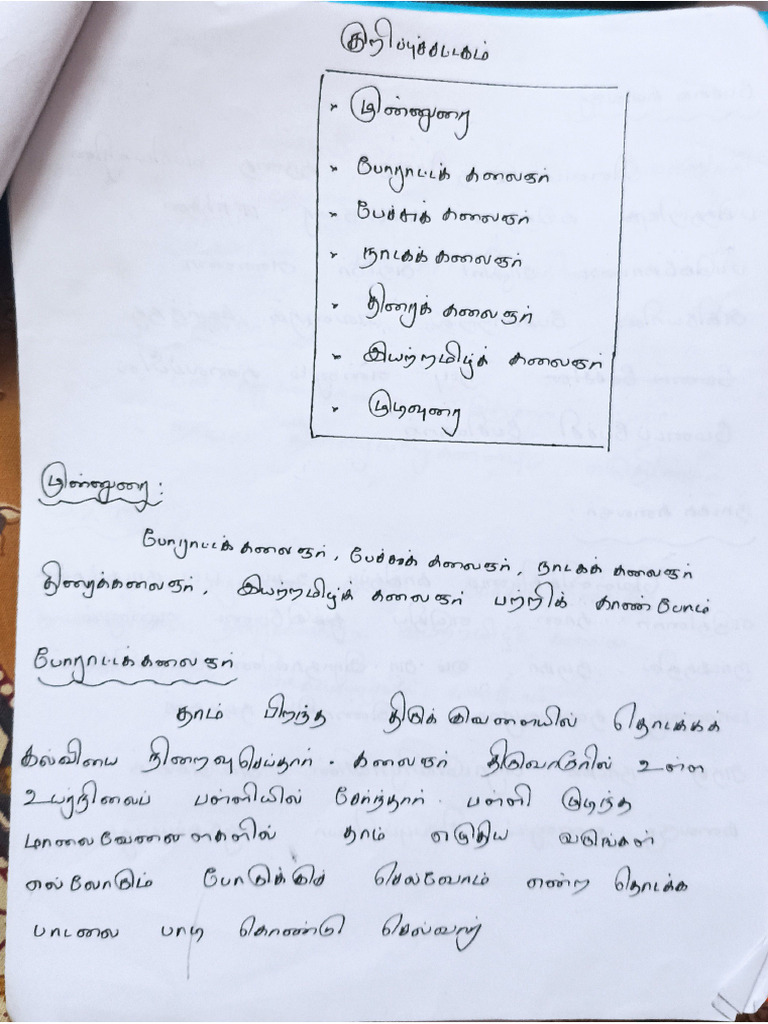 குறிப்புச்சட்டகம்
* முன்னுரை
* போராட்டக் கலைஞர்
* பேச்சுக் கலைஞர்
* நாடகக் கலைஞர்
* திரைக் கலைஞர்
* இயற்றமிழ்க் கலைஞர்
* முடிவுரை
முன்னுரை :
போராட்டக் கலைஞர், பேச்சுக் கலைஞர், நாடகக் கலைஞர்
திரைக்கலைஞர், இயற்றமிழ்க் கலைஞர் பற்றிக் காண்போம்
போராட்டக்கலைஞர்
தாம் பிறந்த திருக்குவளையில் தொடக்கக்
கல்வியை நிறைவுசெய்தார். கலைஞர் திருவாரூரில் உள்ள
உயர்நிலைப் பள்ளியில் சேர்ந்தார். பள்ளி முடிந்த
மாலைவேளைகளில் தாம் எழுதிய வருங்கள்
எல்லோரும் போருக்கு செல்வோம் என்ற தொடக்க
பாடலை பாடி கொண்டு செல்வார்